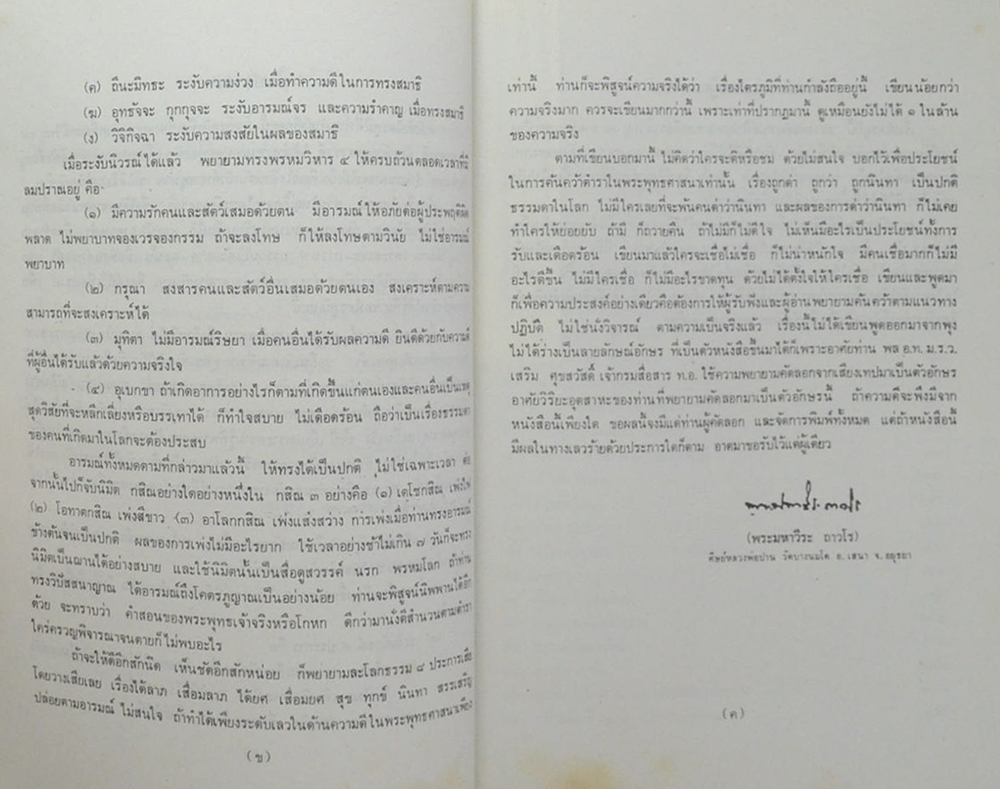 (ค) ถีนะมิทธะ ระงับความง่วง เมื่อทำความดีในการทรงสมาธิ
(ฆ) อุทธัจจะ กุกกุจจะ ระงับอารมณ์จร และความรำคาญ เมื่อทรงสมาธิ
(ง) วิจิกิจฉา ระงับความสงสัยในผลของสมาธิ
เมื่อระงับนิวรณ์ได้แล้ว พยายามทรงพรหมวิหาร ๔ ให้ครบถ้วนตลอดเวลาที่มี
ลมปราณอยู่ คือ
(๑) มีความรักคนและสัตว์เสมอด้วยตน มีอารมณ์ให้อภัยต่อผู้ประพฤติผิด
พลาด ไม่พยาบาทจองเวรจองกรรม ถ้าจะลงโทษ ก็ให้ลงโทษตามวินัย ไม่ใช่อารมณ์
พยาบาท
(๒) กรุณา สงสารคนและสัตว์อื่นเสมอด้วยตนเอง สงเคราะห์ตามความ
สามารถที่จะสงเคราะห์ได้
(๓) มุทิตา ไม่มีอารมณ์ริษยา เมื่อคนอื่นได้รับผลความดี ยินดีด้วยกับความดี
ที่ผู้อื่นได้รับแล้วด้วยความจริงใจ
(๔) อุเบกขา ถ้าเกิดอาการอย่างไรก็ตามที่เกิดขึ้นแก่ตนเองและคนอื่นเป็นเหตุ
สุดวิสัยที่จะหลีกเลี่ยงหรือบรรเทาได้ ก็ทำใจสบาย ไม่เดือดร้อน ถือว่าเป็นเรื่องธรรมดา
ของคนที่เกิดมาในโลกจะต้องประสบ
อารมณ์ทั้งหมดตามที่กล่าวมาแล้วนี้ ให้ทรงได้เป็นปกติ ไม่ใช่เฉพาะเวลา ต่อ
จากนั้นไปก็จับนิมิต กสิณอย่างใดอย่างหนึ่งใน กสิณ ๓ อย่างคือ (๑) เตโชกสิณ เพ่งไฟ
(๒) โอทาตกสิณ เพ่งสีขาว (๓) อาโลกกสิณ เพ่งแสงสว่าง การเพ่งเมื่อท่านทรงอารมณ์
ข้างต้นจนเป็นปกติ ผลของการเพ่งไม่มีอะไรยาก ใช้เวลาอย่างช้าไม่เกิน ๗ วันก็จะทรง
นิมิตเป็นฌานได้อย่างสบาย และใช้นิมิตนั้นเป็นสื่อดูสวรรค์ นรก พรหมโลก ถ้าท่าน
ทรงวิปัสสนาญาณ ได้อารมณ์ถึงโคตรภูญาณเป็นอย่างน้อย ท่านจะพิสูจน์นิพพานได้อีก
ด้วย จะทราบว่า คำสอนของพระพุทธเจ้าจริงหรือโกหก ดีกว่ามานั่งตีสำนวนตามตำรา
ใคร่ครวญพิจารณาจนตายก็ไม่พบอะไร
ถ้าจะให้ดีอีกสักนิด เห็นชัดอีกสักหน่อย ก็พยายามละโลกธรรม ๘ ประการเสีย
โดยวางเสียเลย เรื่องได้ลาภ เสื่อมลาภ ได้ยศ เสื่อมยศ สุข ทุกข์ นินทา สรรเสริญ
ปล่อยตามอารมณ์ ไม่สนใจ ถ้าทำได้เพียงระดับเลวในด้านความดีในพระพุทธศาสนาเพียง
(ข)
เท่านี้ ท่านก็จะพิสูจน์ความจริงได้ว่า เรื่องไตรภูมิที่ท่านกำลังถืออยู่นี้ เขียนน้อยกว่า
ความจริงมาก ควรจะเขียนมากกว่านี้ เพราะเท่าที่ปรากฏมานี้ ดูเหมือนยังไม่ได้ ๑ ในล้าน
ของความจริง
ตามที่เขียนบอกมานี้ ไม่คิดว่าใครจะติหรือชม ด้วยไม่สนใจ บอกไว้เพื่อประโยชน์
ในการค้นคว้าตำราในพระพุทธศาสนาเท่านั้น เรื่องถูกด่า ถูกว่า ถูกนินทา เป็นปกติ
ธรรมดาในโลก ไม่มีใครเลยที่จะพ้นคนด่าว่านินทา และผลของการด่าว่านินทา ก็ไม่เคย
ทำใครให้ย่อยยับ ถ้ามี ก็ถวายคืน ถ้าไม่มีก็ไม่ดีใจ ไม่เห็นมีอะไรเป็นประโยชน์ทั้งการ
รับและเดือดร้อน เขียนมาแล้วใครจะเชื่อไม่เชื่อ ก็ไม่น่าหนักใจ มีคนเชื่อมากก็ไม่มี
อะไรดีขึ้น ไม่มีใครเชื่อ ก็ไม่มีอะไรขาดทุน ด้วยไม่ได้ตั้งใจให้ใครเชื่อ เขียนและพูดมา
ก็เพื่อความประสงค์อย่างเดียวคือต้องการให้ผู้รับฟังและผู้อ่านพยายามค้นคว้าตามแนวทาง
ปฏิบัติ ไม่ใช่นั่งวิจารณ์ ตามความเป็นจริงแล้ว เรื่องนี้ไม่ได้เขียนพูดออกมาจากพุง
ไม่ได้ร่างเป็นลายลักษณ์อักษร ที่เป็นตัวหนังสือขึ้นมาได้ก็เพราะอาศัยท่าน พล อ.ท. ม.ร.ว.
เสริม ศุขสวัสดิ์ เจ้ากรมสื่อสาร ท.อ. ใช้ความพยายามคัดลอกจากเสียงเทปมาเป็นตัวอักษร
อาศัยวิริยะอุตสาหะของท่านที่พยายามคัดลอกมาเป็นตัวอักษรนี้ ถ้าความดีจะพึงมีจาก
หนังสือนี้เพียงใด ขอผลนี้จงมีแด่ท่านผู้คัดลอก และจัดการพิมพ์ทั้งหมด แต่ถ้าหนังสือนี้
มีผลในทางเลวร้ายด้วยประการใดก็ตาม อาตมาขอรับไว้แต่ผู้เดียว
(พระมหาวีระ ถาวโร)
ศิษย์หลวงพ่อปาน วัดบางนมโค อ. เสนา จ. อยุธยา
(ค)